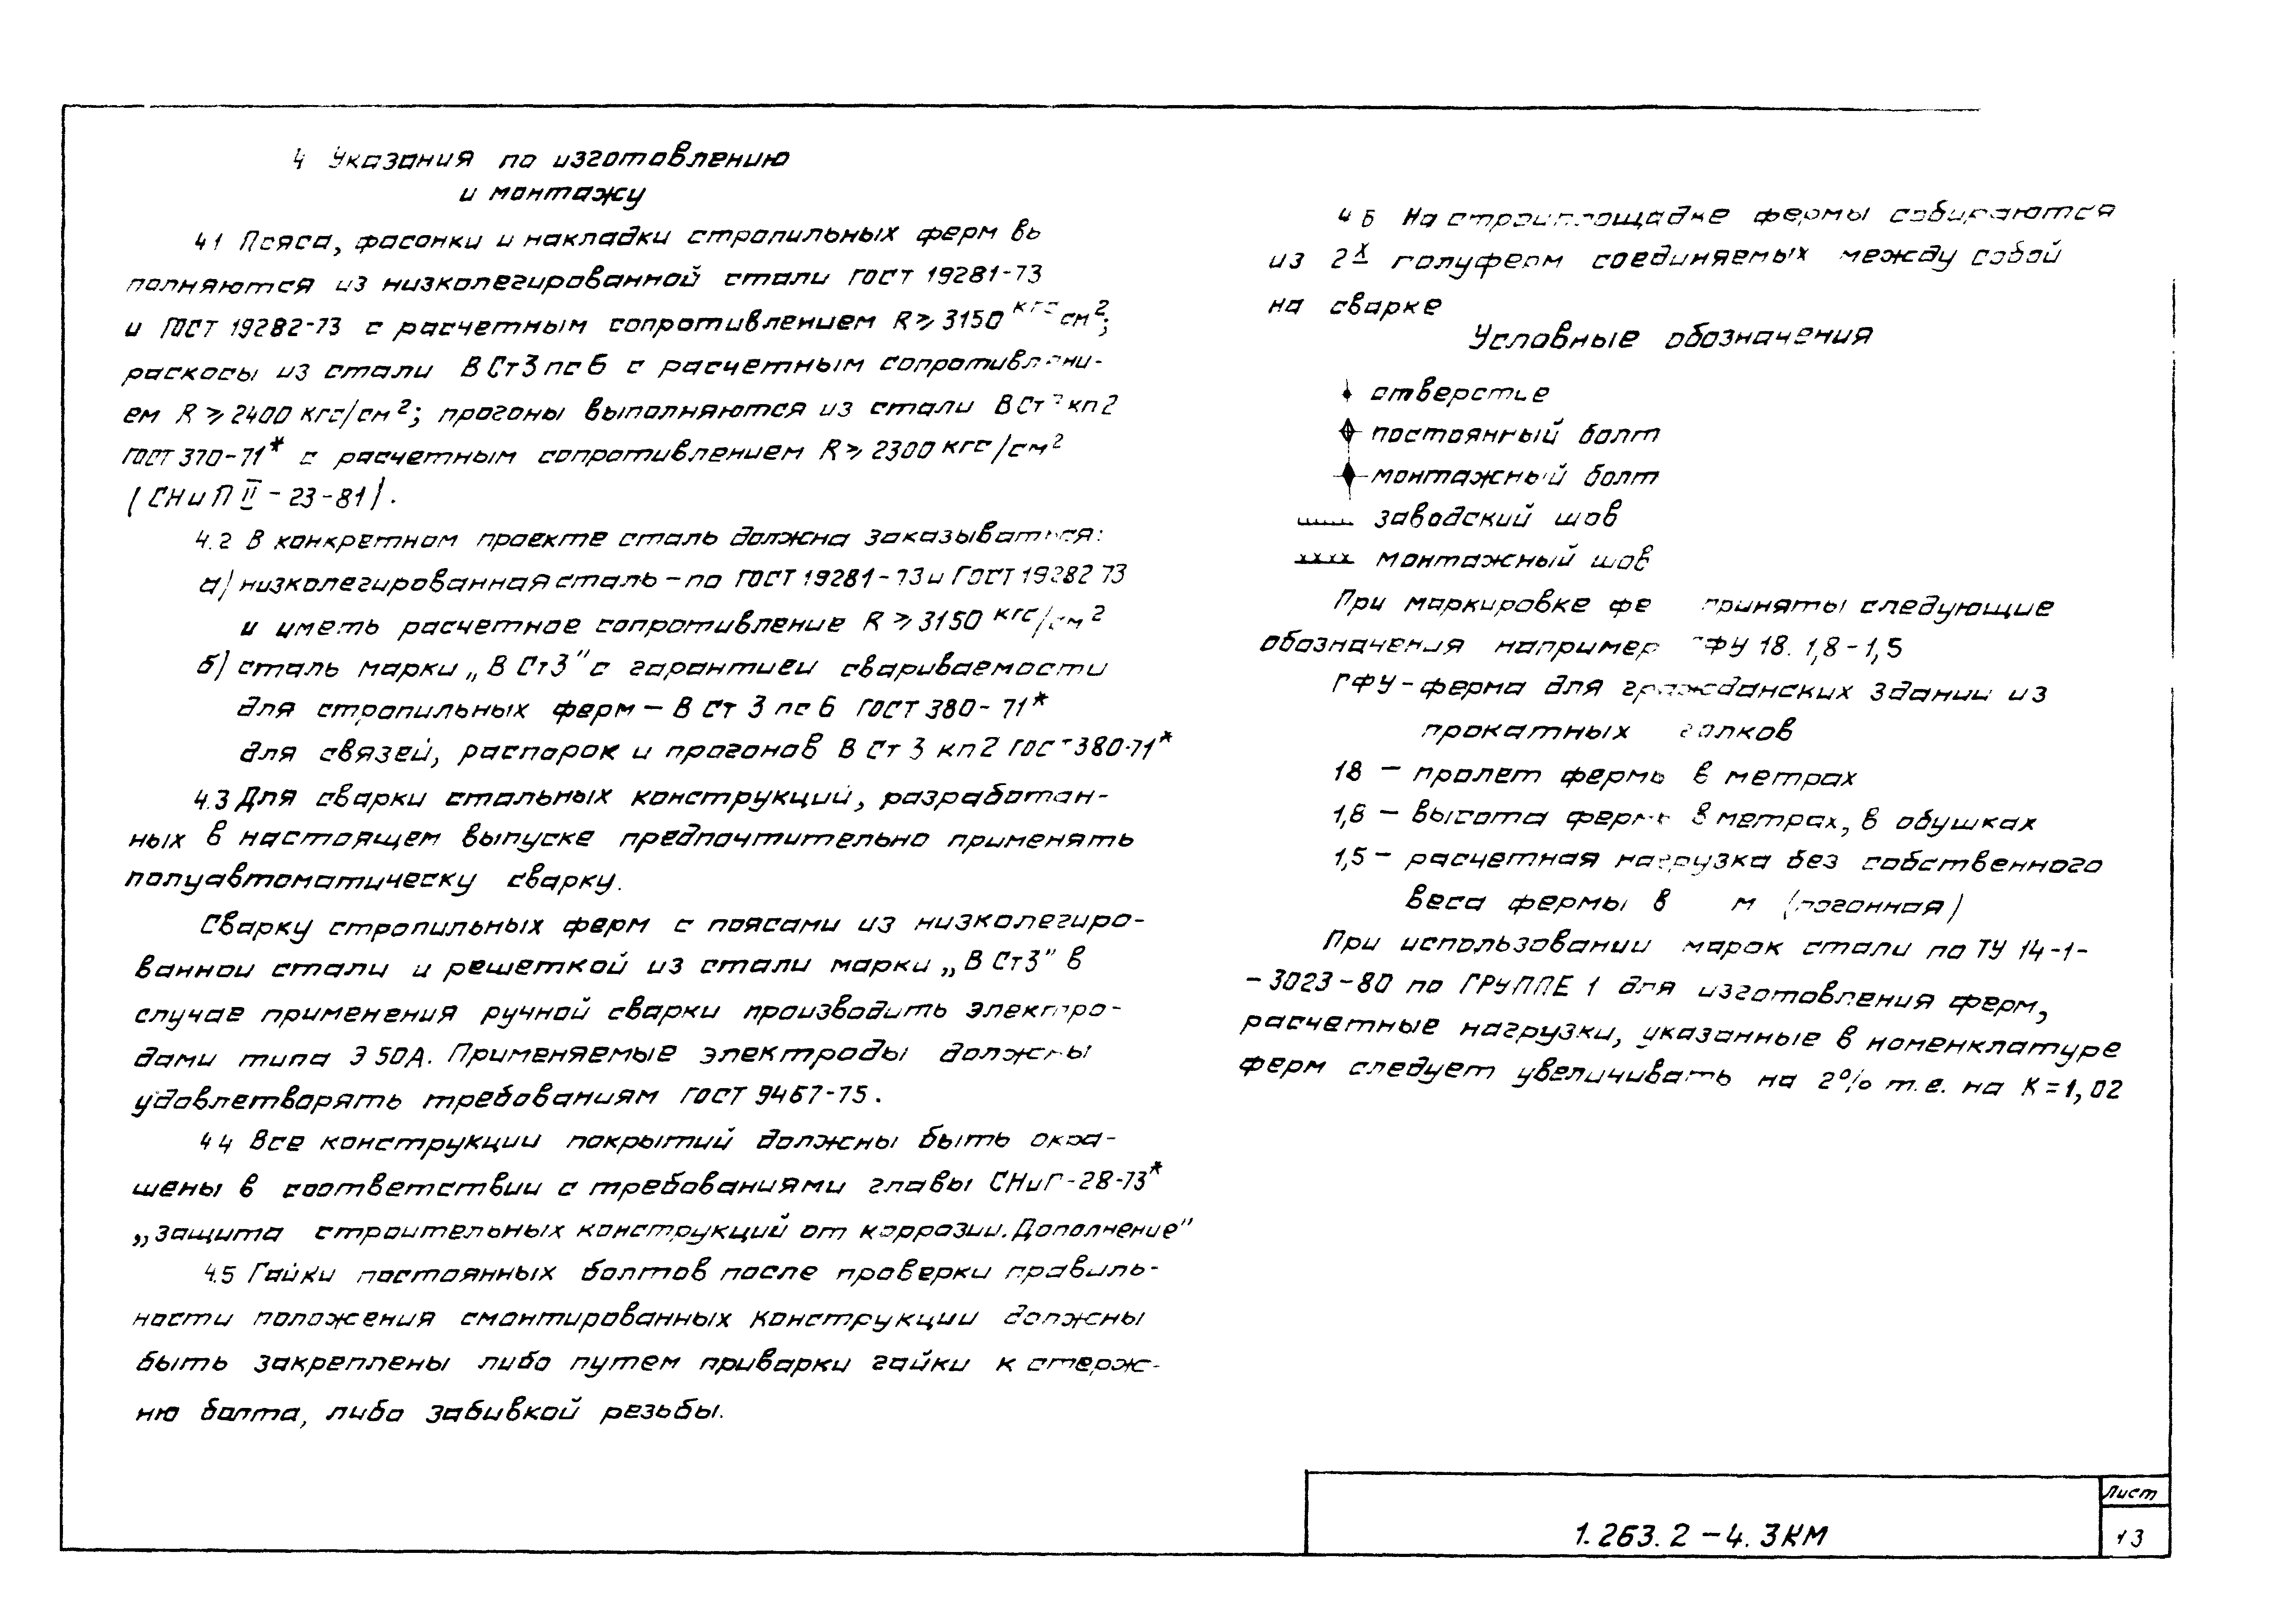 4 Указания по изготовлению
и монтажу
4.1 Пояса, фасонки и накладки стропильных ферм вы
полняются из низколегированной стали ГОСТ 19281-73
и ГОСТ 19282-73 с расчетным сопротивлением R ⩾ 3150 кгс/см²;
раскосы из стали ВСт3пс6 с расчетным сопротивлени-
ем R ⩾ 2400 кгс/см²; прогоны выполняются из стали ВСт3кп2
ГОСТ 370-71* с расчетным сопротивлением R ⩾ 2300 кгс/см²
(СНиП II-23-81).
4.2 В конкретном проекте сталь должна заказываться:
а) низколегированная сталь – по ГОСТ 19281-73 и ГОСТ 19282 73
и иметь расчетное сопротивление R ⩾ 3150 кгс/см²
б) сталь марки „ВСт3" с гарантией свариваемости
для стропильных ферм – ВСт3пс6 ГОСТ 380-71*
для связей, распорок и прогонов ВСт3кп2 ГОСТ 380-71*
4.3 Для сварки стальных конструкций, разработан-
ных в настоящем выпуске предпочтительно применять
полуавтоматическу сварку.
Сварку стропильных ферм с поясами из низколегиро-
ванной стали и решеткой из стали марки „ВСт3" в
случае применения ручной сварки производить электро-
дами типа Э50А. Применяемые электроды должны
удовлетворять требованиям ГОСТ 9467-75.
4.4 Все конструкции покрытий должны быть окра-
шены в соответствии с требованиями главы СНиП-28-73*
„Защита строительных конструкций от коррозии. Дополнение"
4.5 Гайки постоянных болтов после проверки правиль-
ности положения смонтированных конструкции должны
быть закреплены либо путем приварки гайки к стерж-
ню болта, либо забивкой резьбы.
4.6 На стройплощадке фермы собираются
из 2х полуферм соединяемых между собой
на сварке
Условные обозначения
отверстие
постоянный болт
монтажный болт
заводский шов
монтажный шов
При маркировке фе приняты следующие
обозначения например ГФУ 18. 1,8-1,5
ГФУ-ферма для гражданских здании из
прокатных голков
18 – пролет фермы в метрах
1,8 – высота фермы в метрах, в обушках
1,5 – расчетная нагрузка без собственного
веса фермы в м (погонная)
При использовании марок стали по ТУ 14-1-
-3023-80 по ГРУППЕ 1 для изготовления ферм,
расчетные нагрузки, указанные в номенклатуре
ферм следует увеличивать на 2% т.е. на К=1,02
1.263.2-4.3КМ
Лист
13